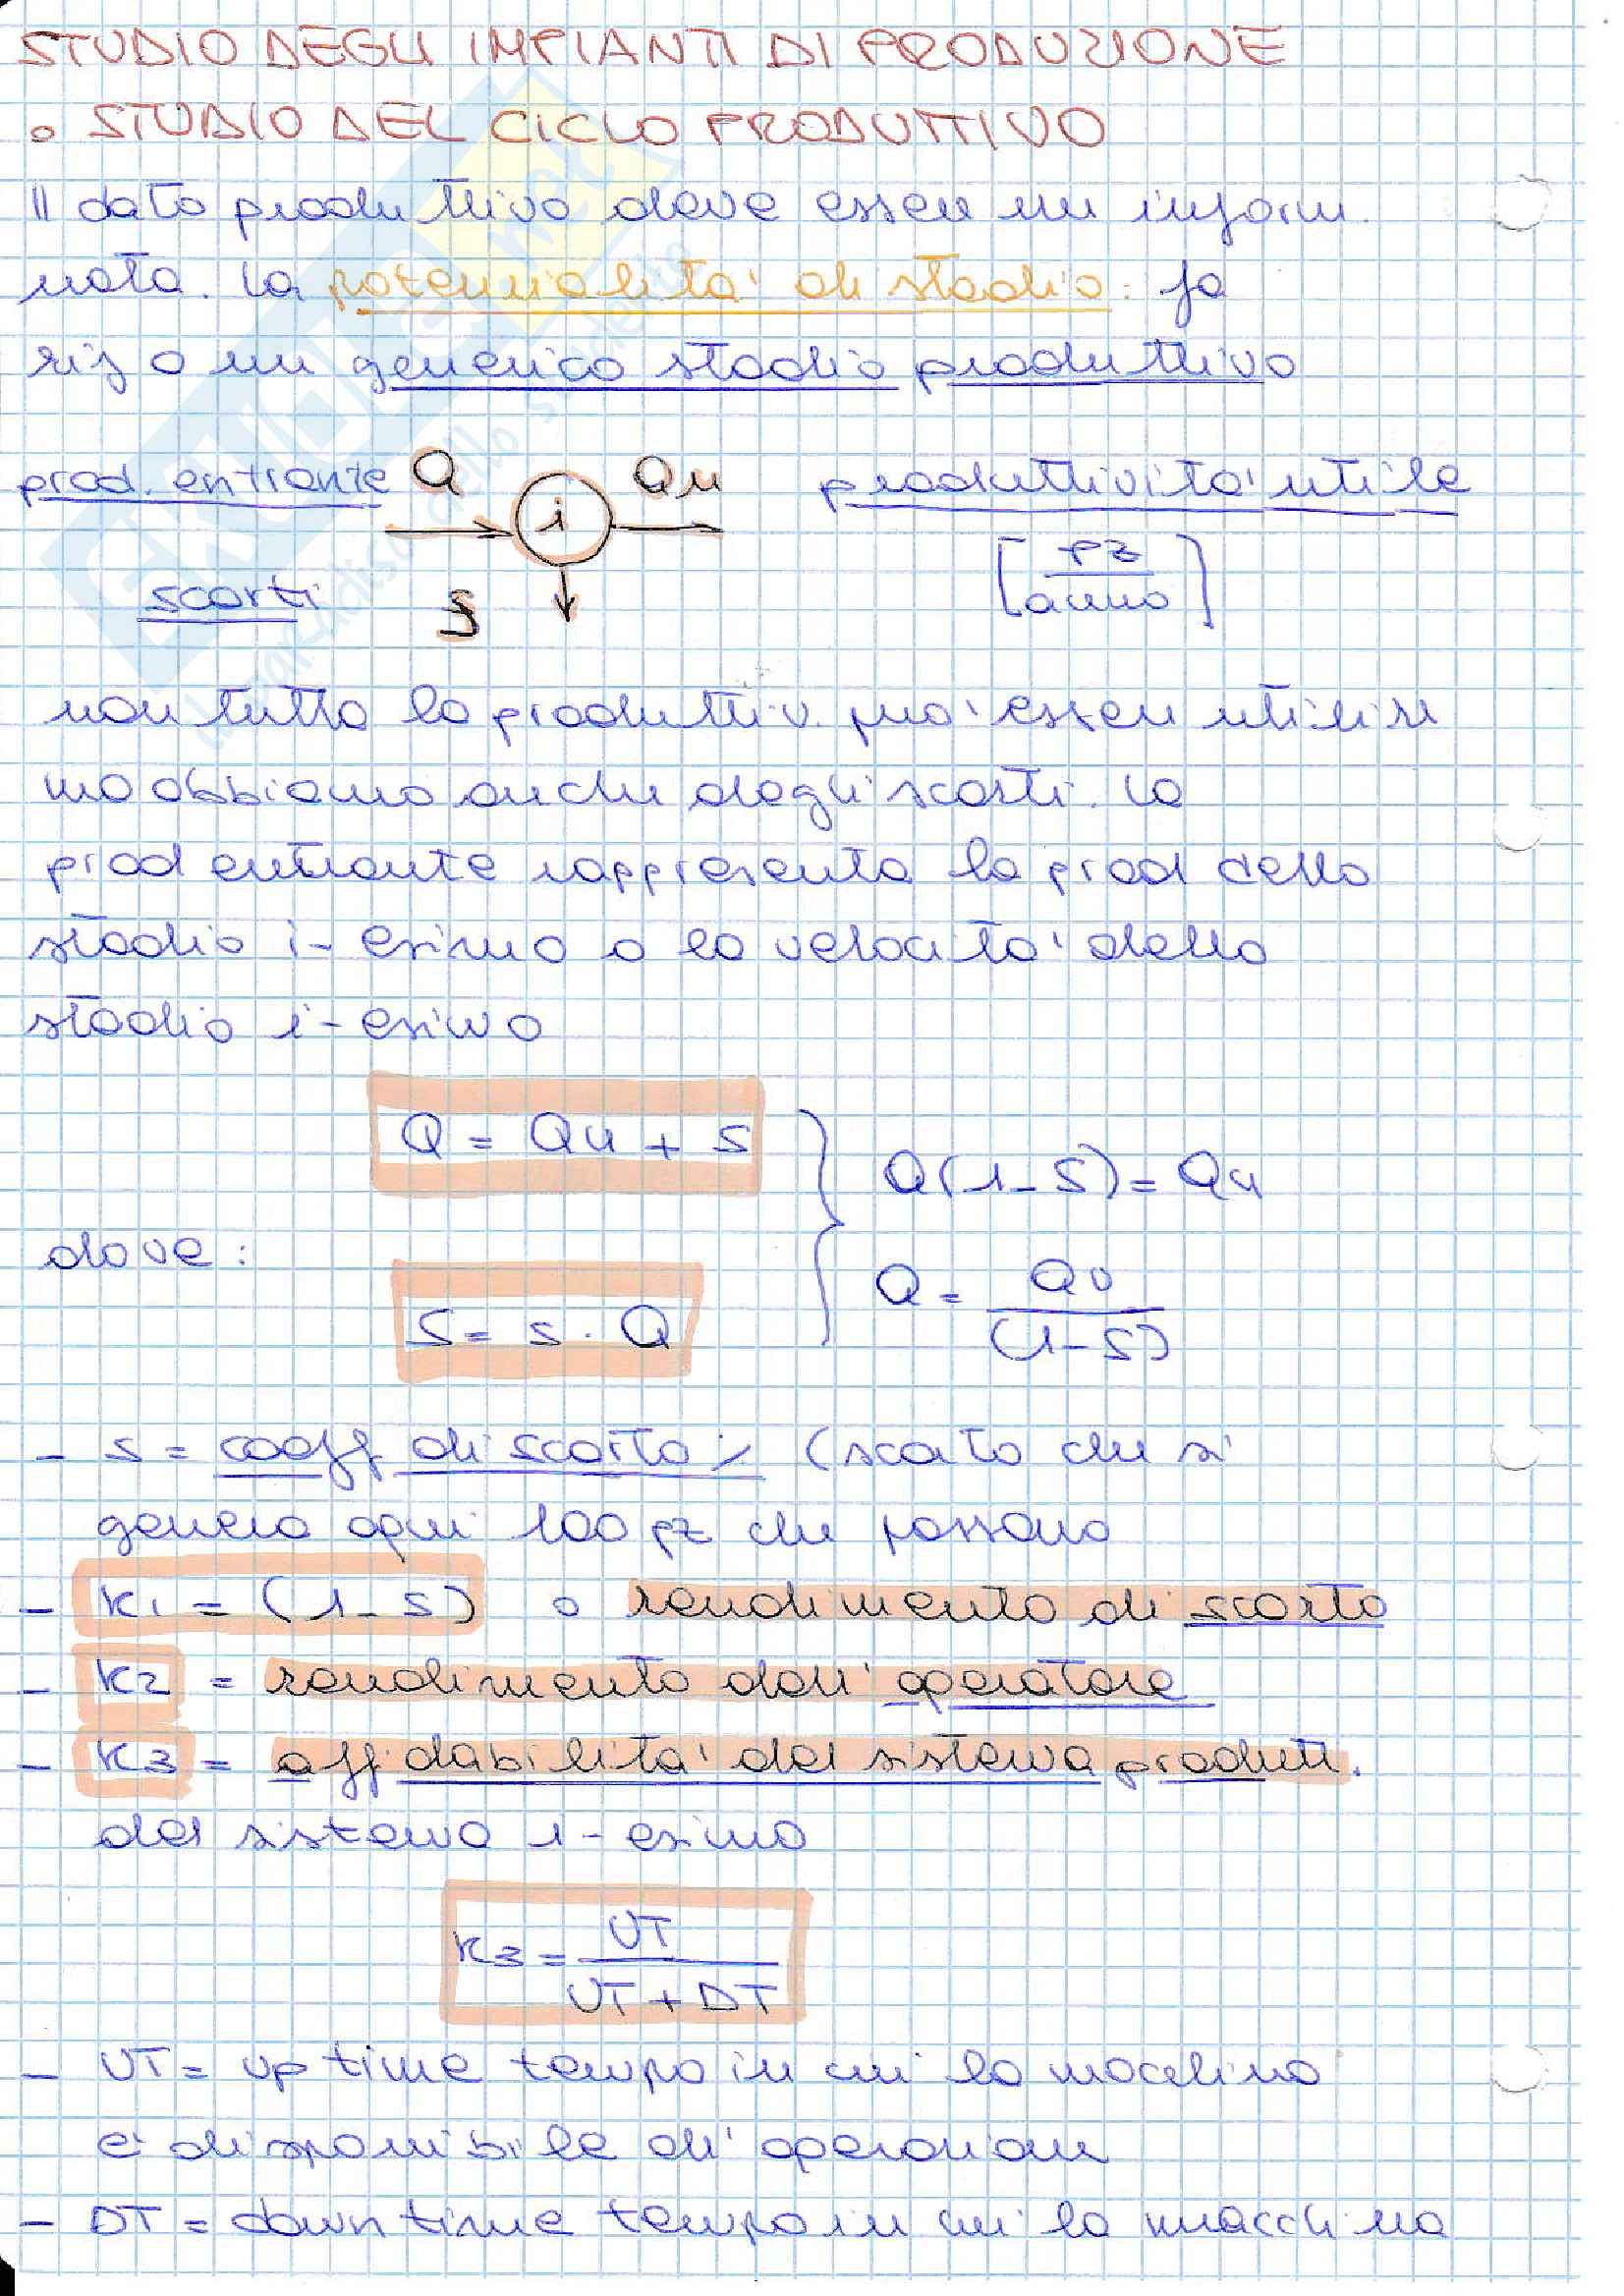 STUDIO DEGLI IMPIANTI DI PRODUZIONE
o STUDIO DEL CICLO PRODUTTIVO
Il dato produttivo deve essere un inform.
nota. La potenzialità di stadio: fa
rif a un generico stadio produttivo
prod. entrante Q i Qu produttività utile
[pz/anno]
scarti S
non tutta la produttiv. può essere utilizz
ma abbiamo anche degli scarti. La
prod entrante rappresenta la prod dello
stadio i-esimo o la velocità dello
stadio i-esimo
Q = Qu + S
Q(1-s) = Qu
dove:
S = s · Q
Q = Qu/(1-s)
- s = coeff di scarto % (scarto che si
genera ogni 100 pz che passano
- K1 = (1-s) o rendimento di scarto
- K2 = rendimento dell'operatore
- K3 = affidabilità del sistema produtt.
del sistema i-esimo
K3 = UT/(UT+DT)
- UT = up time tempo in cui la macchina
è disponibile all'operazione
- DT = down time tempo in cui la macchina